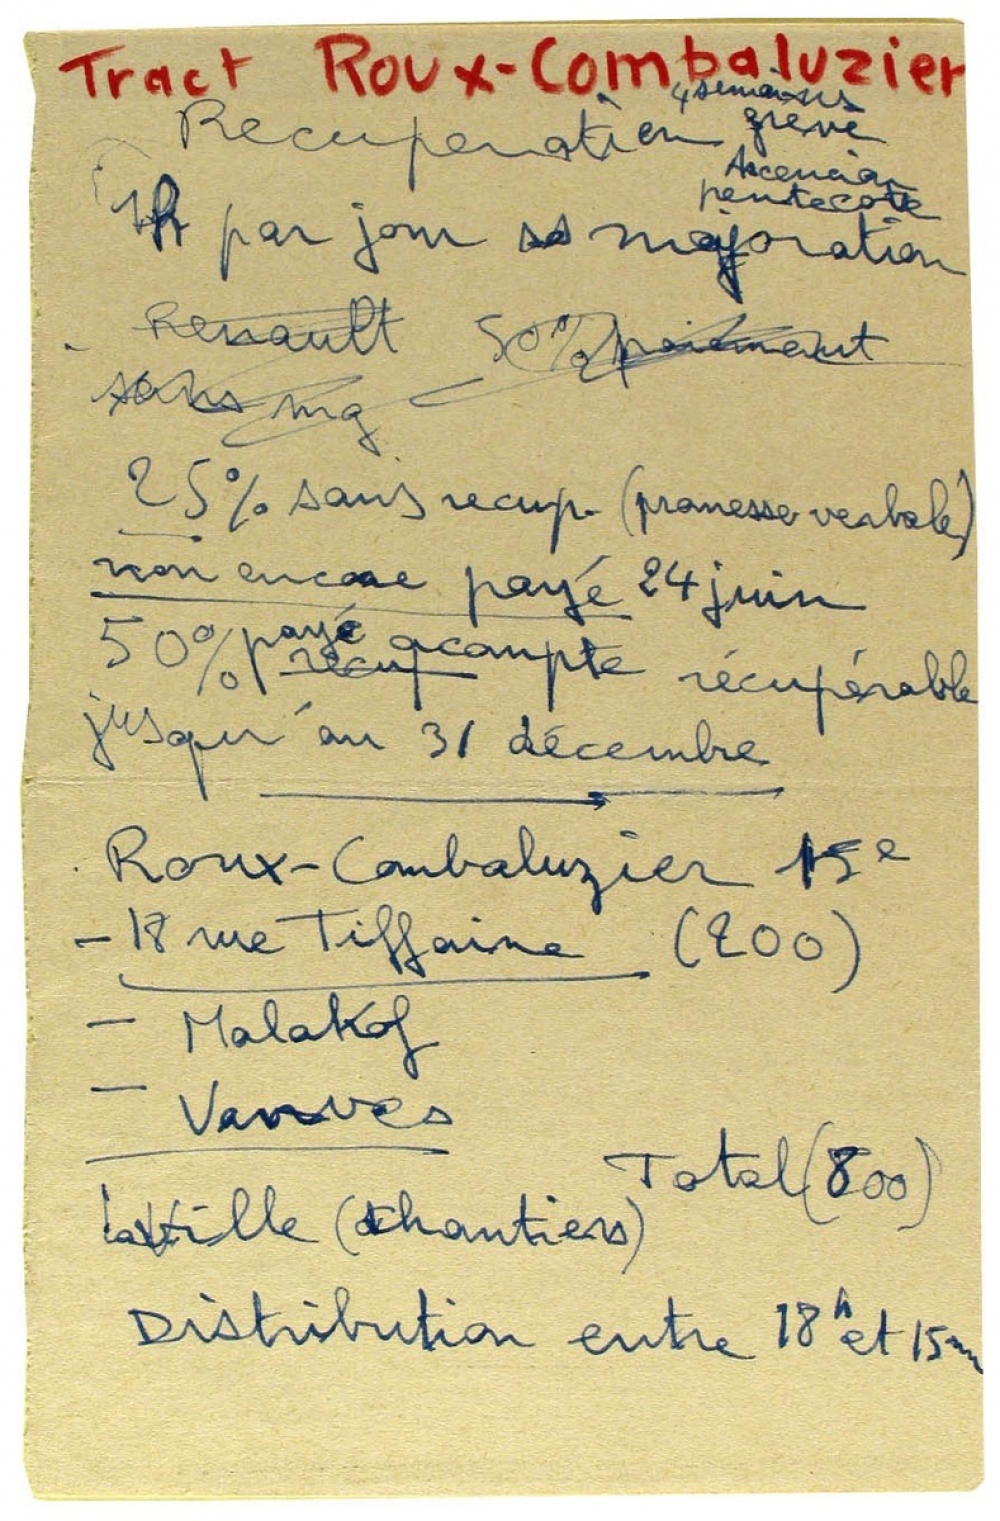 Tract Roux-Combaluzier
Recuperation 4 semaines
grève
Ascencion
pentecote
1h par jour ss majoration
Renault 50% paiement
sans mg
25% sans recup. (promesse verbale)
non encore payé 24 juin
50% payé acompte récupérable
recup
jusqu'au 31 décembre
Roux-Combaluzier 15e
- 18 rue Tiffaine (200)
- Malakof
- Vanves
Total (800)
la Ville (chantiers)
Distribution entre 18h et 15